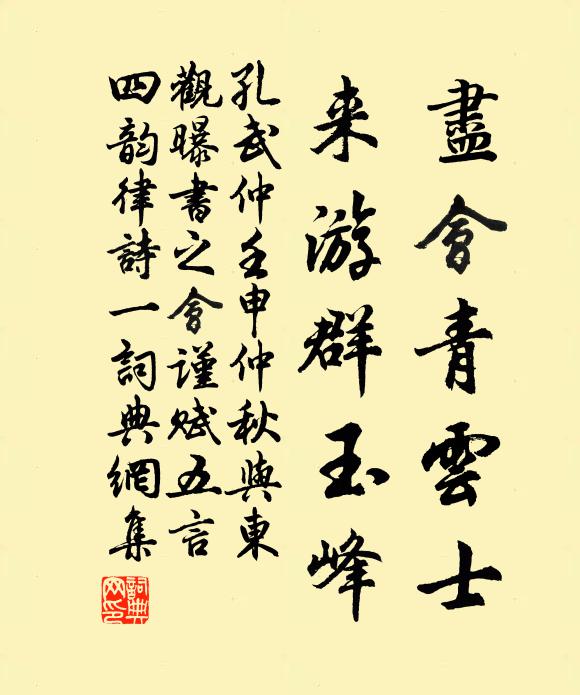 盡會青雲士
来游群玉峰
孔武仲壬申仲秋與東
觀曝書之會謹賦五言
四韵律詩一詞典網集
詞典网印